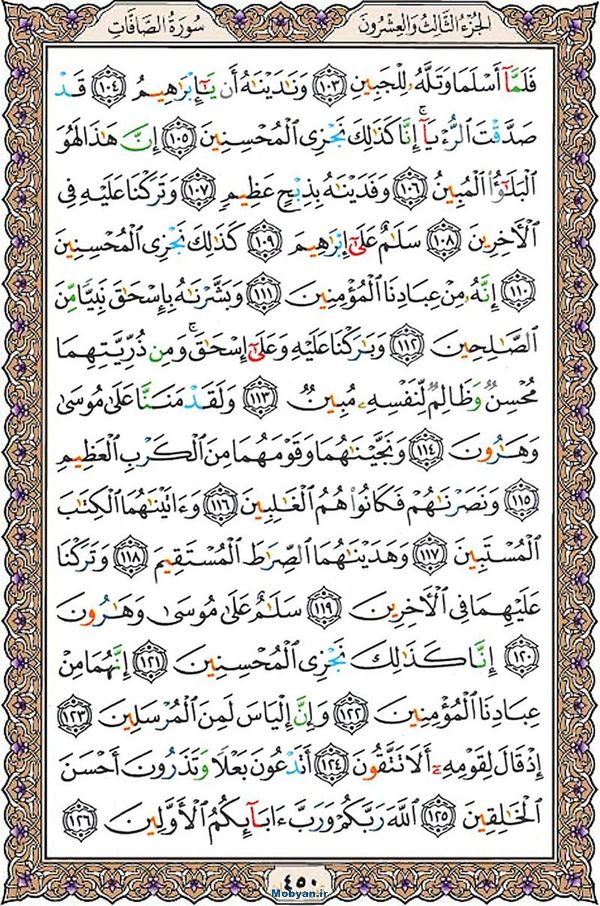 الجُزءُ الثَّالِثُ وَالعِشرُونَ سُورَةُ الصَّافَّاتِ
فَلَمَّآ أَسۡلَمَا وَتَلَّهُۥ لِلۡجَبِينِ ١٠٣ وَنَٰدَيۡنَٰهُ أَن يَٰٓإِبۡرَٰهِيمُ ١٠٤ قَدۡ
صَدَّقۡتَ ٱلرُّءۡيَآۚ إِنَّا كَذَٰلِكَ نَجۡزِي ٱلۡمُحۡسِنِينَ ١٠٥ إِنَّ هَٰذَا لَهُوَ
ٱلۡبَلَٰٓؤُاْ ٱلۡمُبِينُ ١٠٦ وَفَدَيۡنَٰهُ بِذِبۡحٍ عَظِيمٖ ١٠٧ وَتَرَكۡنَا عَلَيۡهِ فِي
ٱلۡأٓخِرِينَ ١٠٨ سَلَٰمٌ عَلَىٰٓ إِبۡرَٰهِيمَ ١٠٩ كَذَٰلِكَ نَجۡزِي ٱلۡمُحۡسِنِينَ
١١٠ إِنَّهُۥ مِنۡ عِبَادِنَا ٱلۡمُؤۡمِنِينَ ١١١ وَبَشَّرۡنَٰهُ بِإِسۡحَٰقَ نَبِيّٗا مِّنَ
ٱلصَّٰلِحِينَ ١١٢ وَبَٰرَكۡنَا عَلَيۡهِ وَعَلَىٰٓ إِسۡحَٰقَۚ وَمِن ذُرِّيَّتِهِمَا
مُحۡسِنٞ وَظَالِمٞ لِّنَفۡسِهِۦ مُبِينٞ ١١٣ وَلَقَدۡ مَنَنَّا عَلَىٰ مُوسَىٰ
وَهَٰرُونَ ١١٤ وَنَجَّيۡنَٰهُمَا وَقَوۡمَهُمَا مِنَ ٱلۡكَرۡبِ ٱلۡعَظِيمِ
١١٥ وَنَصَرۡنَٰهُمۡ فَكَانُواْ هُمُ ٱلۡغَٰلِبِينَ ١١٦ وَءَاتَيۡنَٰهُمَا ٱلۡكِتَٰبَ
ٱلۡمُسۡتَبِينَ ١١٧ وَهَدَيۡنَٰهُمَا ٱلصِّرَٰطَ ٱلۡمُسۡتَقِيمَ ١١٨ وَتَرَكۡنَا
عَلَيۡهِمَا فِي ٱلۡأٓخِرِينَ ١١٩ سَلَٰمٌ عَلَىٰ مُوسَىٰ وَهَٰرُونَ
١٢٠ إِنَّا كَذَٰلِكَ نَجۡزِي ٱلۡمُحۡسِنِينَ ١٢١ إِنَّهُمَا مِنۡ
عِبَادِنَا ٱلۡمُؤۡمِنِينَ ١٢٢ وَإِنَّ إِلۡيَاسَ لَمِنَ ٱلۡمُرۡسَلِينَ ١٢٣
إِذۡ قَالَ لِقَوۡمِهِۦٓ أَلَا تَتَّقُونَ ١٢٤ أَتَدۡعُونَ بَعۡلٗا وَتَذَرُونَ أَحۡسَنَ
ٱلۡخَٰلِقِينَ ١٢٥ ٱللَّهَ رَبَّكُمۡ وَرَبَّ ءَابَآئِكُمُ ٱلۡأَوَّلِينَ ١٢٦
٤٥٠
Mobyan.ir